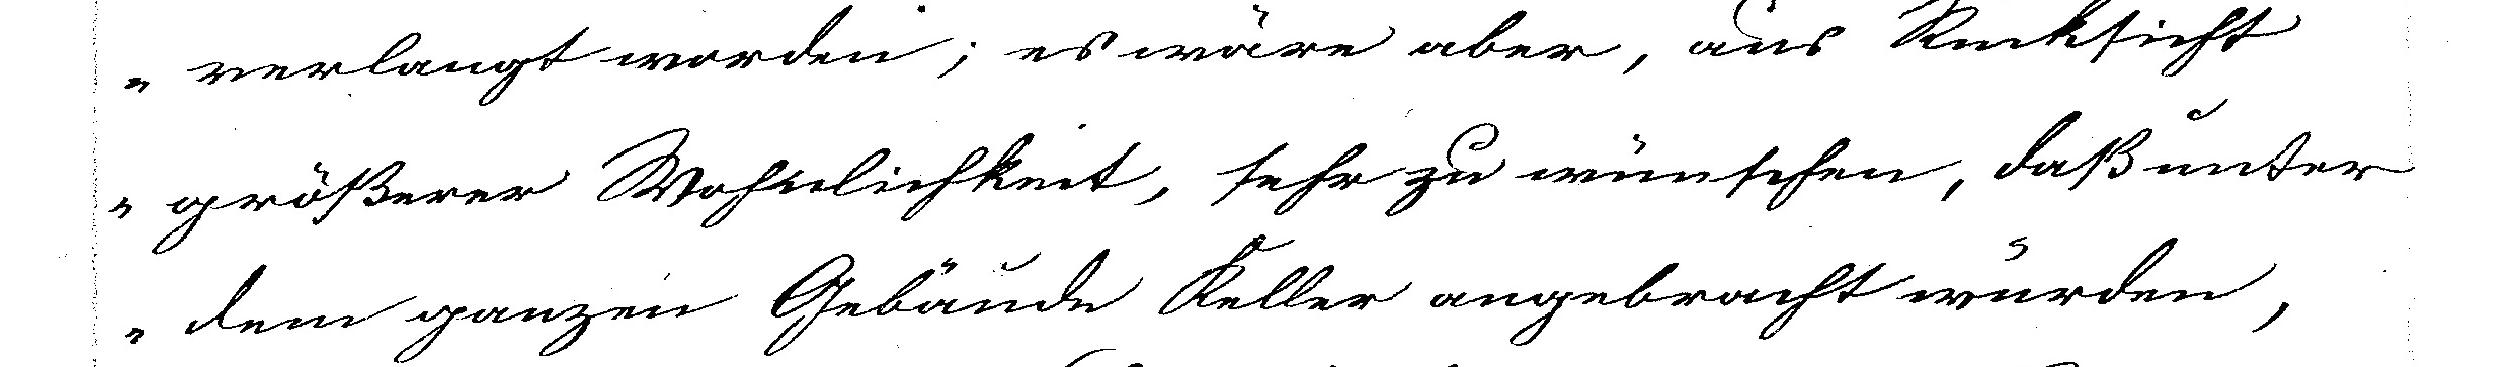 „ verlangt worden; es wäre aber, aus Rücksicht
„ größerer Wohnlichkeit, sehr zu wünschen, daß unter
„ dem ganzen Gebäude Keller angebracht würden,